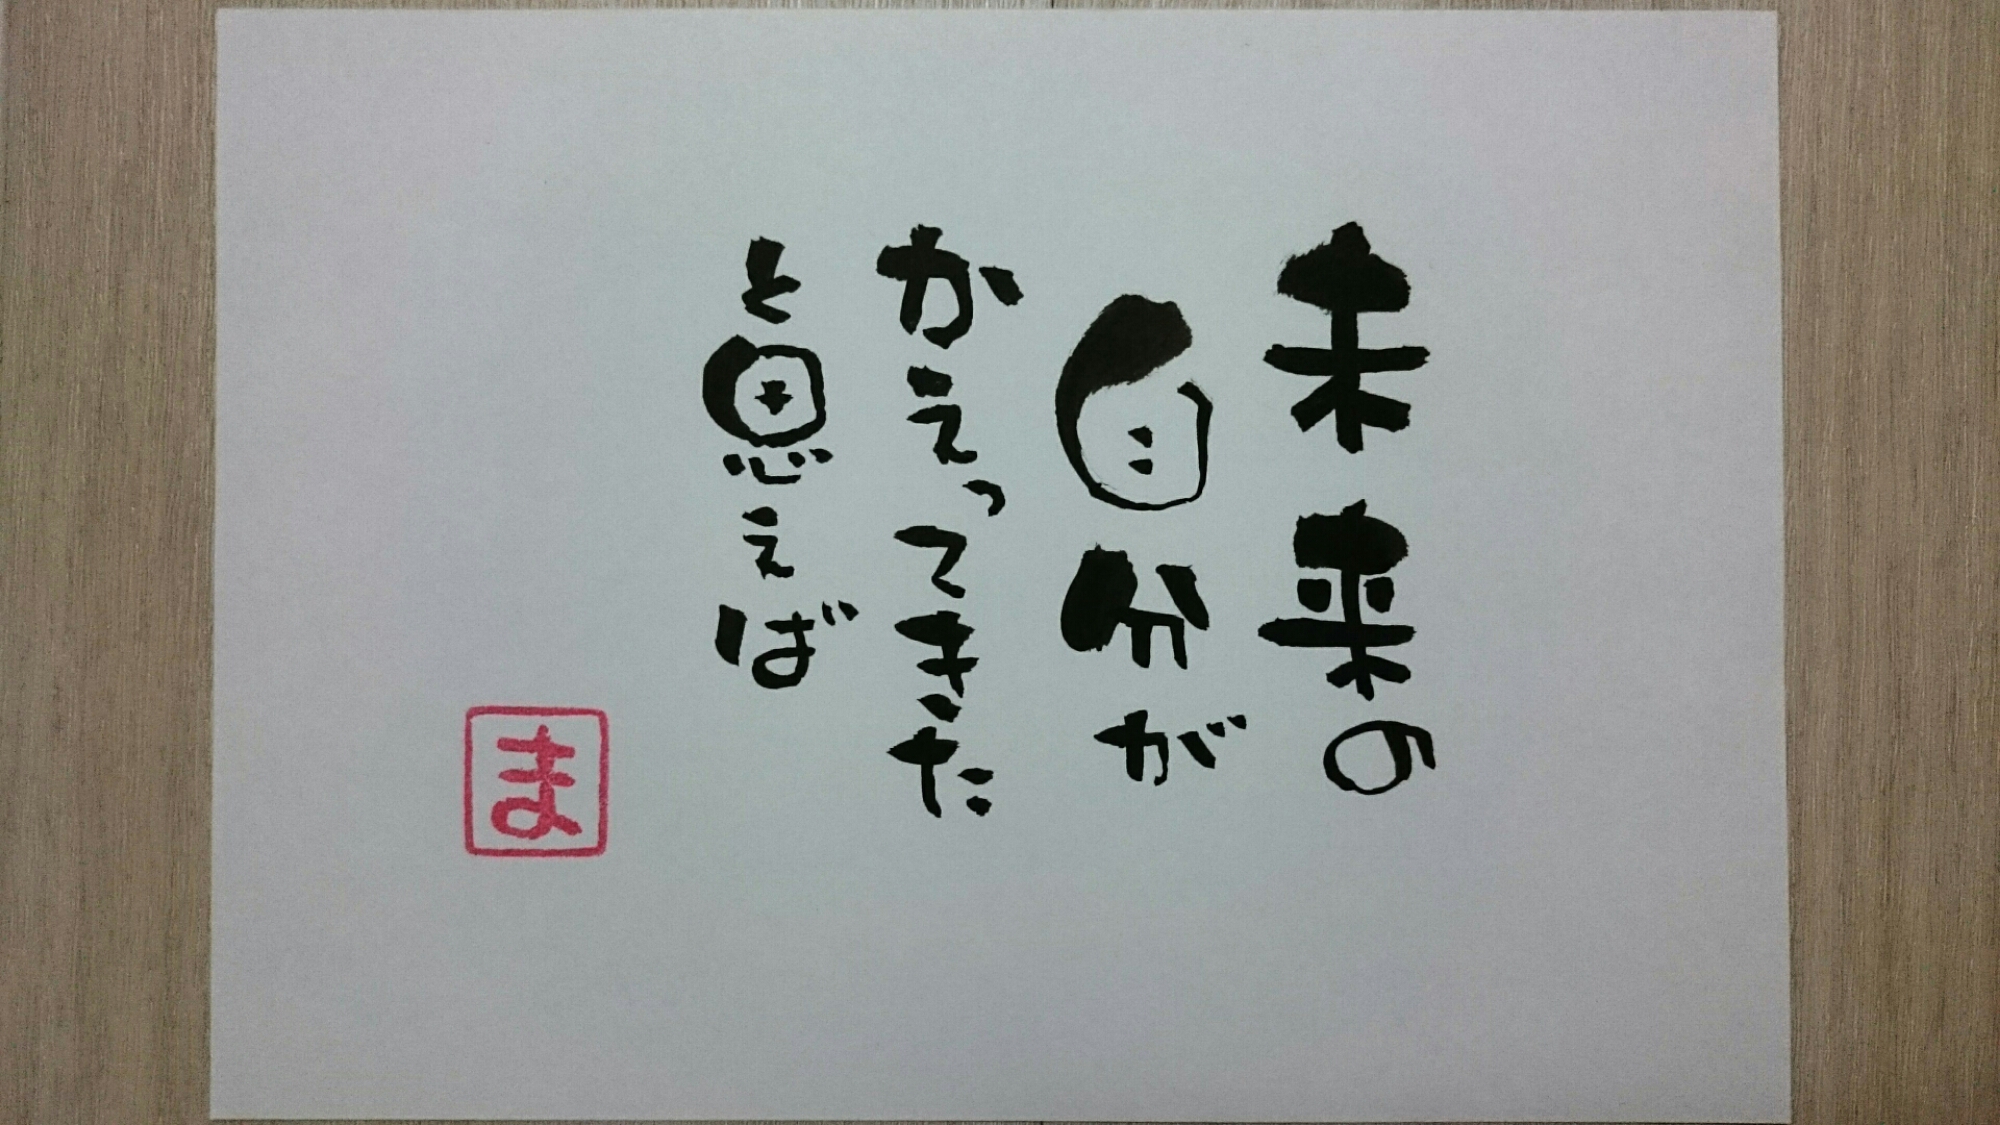 未来の
自分が
かえってきた
と思えば
ま